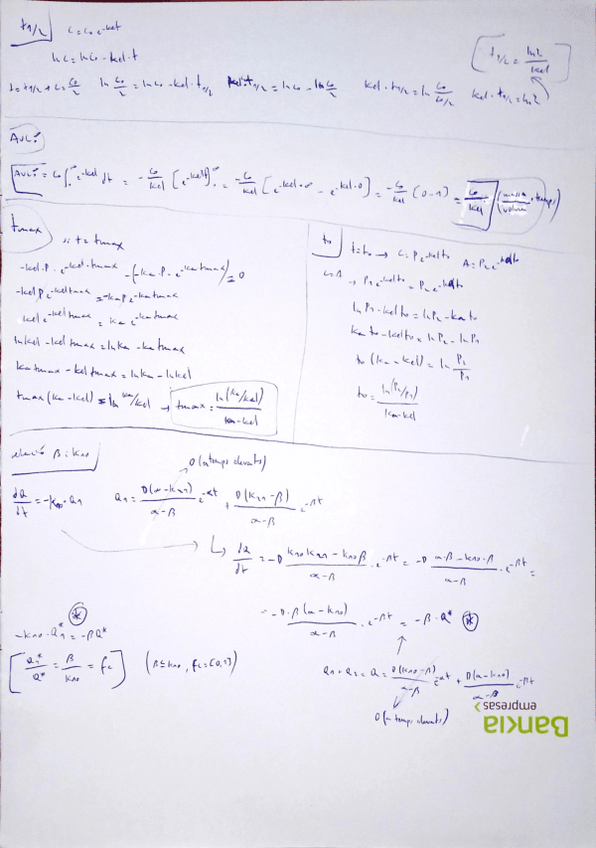 t1/2
C = C0 e^-kel·t
lnC = lnC0 - kel·t
t = t1/2 → C = C0/2
ln C0/2 = lnC0 - kel·t1/2
kel·t1/2 = lnC0 - ln C0/2
kel·t1/2 = ln C0/(C0/2)
kel·t1/2 = ln2
[t1/2 = ln2/kel]
AUC:
AUC = C0 ∫0^∞ e^-kel·t dt = -C0/kel [e^-kel·t]0^∞ = -C0/kel [e^-kel·∞ - e^-kel·0] = -C0/kel (0-1) = C0/kel (massa/volum · temps)
tmax
t = tmax
-kel·P·e^-kel·tmax - (-ka·P·e^-ka·tmax) = 0
-kel P e^-kel tmax = -ka P e^-ka tmax
kel e^-kel tmax = ka e^-ka tmax
lnkel - kel tmax = lnka - ka tmax
ka tmax - kel tmax = lnka - lnkel
tmax (ka - kel) = ln ka/kel → tmax = ln(ka/kel)/(ka-kel)
t0
t = t0 → C = P1 e^-kel t0 A = P2 e^-ka t0
C = A → P1 e^-kel t0 = P2 e^-ka t0
lnP1 - kel t0 = lnP2 - ka t0
ka t0 - kel t0 = lnP2 - lnP1
t0 (ka - kel) = ln P2/P1
t0 = ln(P2/P1)/(ka-kel)
relació β i k10
0 (a temps elevats)
dQ/dt = -k10·Q1
Q1 = D(α-k21)/(α-β) e^-αt + D(k21-β)/(α-β) e^-βt
dQ/dt = -D (k10 k21 - k10 β)/(α-β) · e^-βt = -D (α·β - k10·β)/(α-β) · e^-βt =
= -D·β(α-k10)/(α-β) · e^-βt = -β·Q* *
*
-k10·Q1* = -βQ*
[Q1*/Q* = β/k10 = fc] (β ≤ k10, fc = [0,1])
Q1 + Q2 = Q = D(k10-β)/(α-β) e^-αt + D(α-k10)/(α-β) e^-βt
0 (a temps elevats)
Bankia
empresas